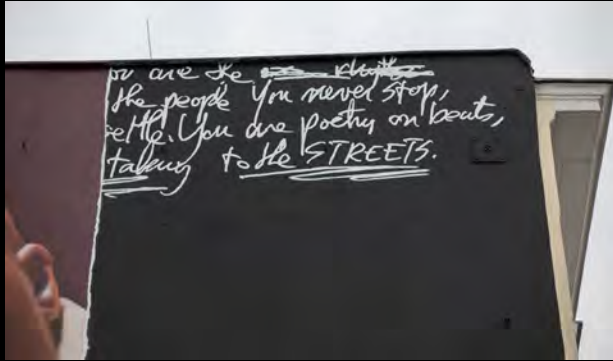 are the
the people You never stop,
You are poetry on beats,
taking to the STREETS.